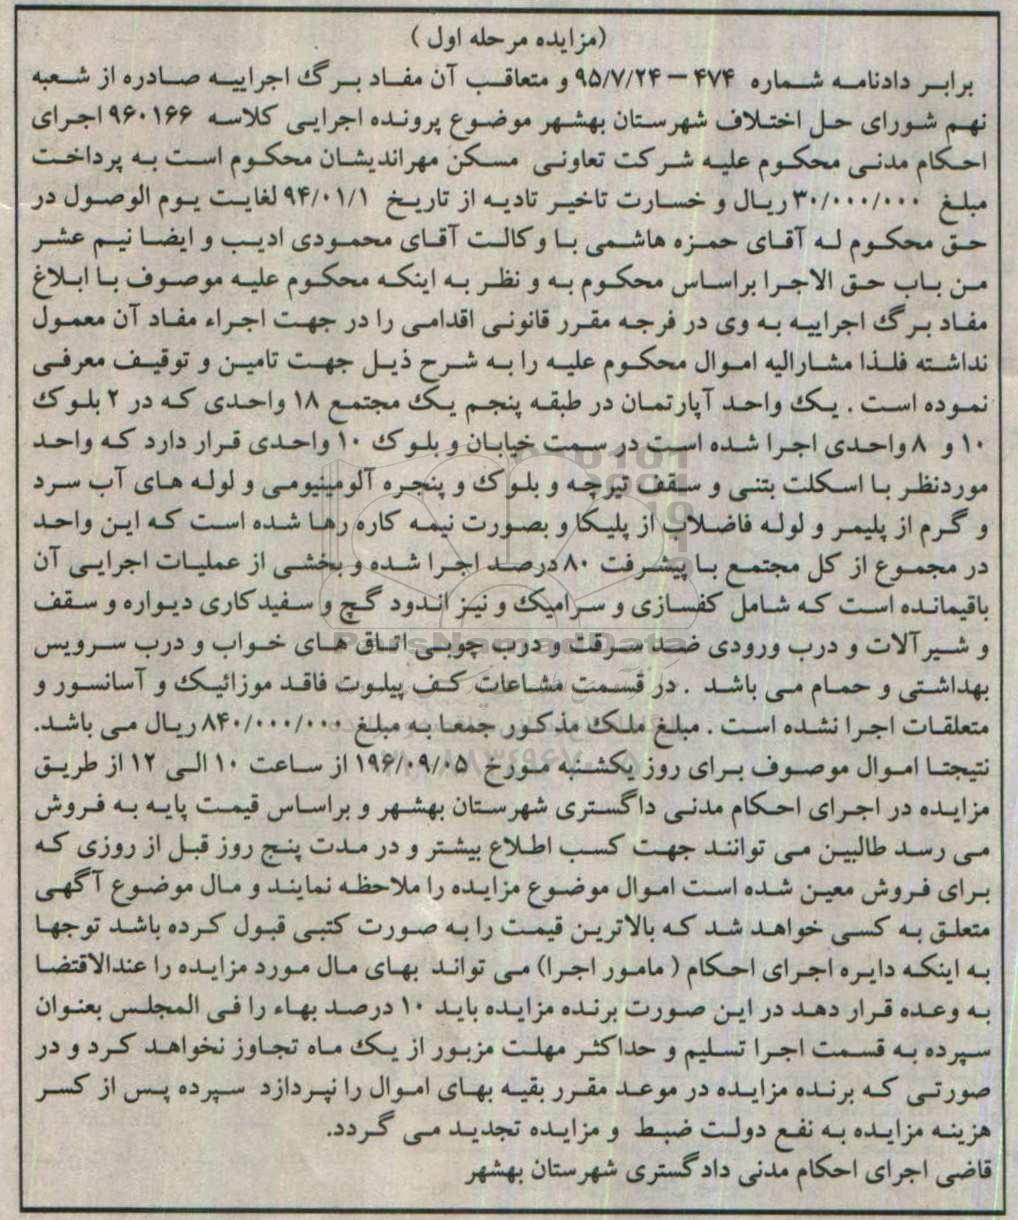 (مزایده مرحله اول )
برابر دادنامه شماره ۴۷۴ – ۹۵/۷/۲۴ و متعاقب آن مفاد برگ اجراییه صادره از شعبه
نهم شورای حل اختلاف شهرستان بهشهر موضوع پرونده اجرایی کلاسه ۹۶۰۱۶۶ اجرای
احکام مدنی محکوم علیه شرکت تعاونی مسکن مهراندیشان محکوم است به پرداخت
مبلغ ۳۰/۰۰۰/۰۰۰ ریال و خسارت تاخیر تادیه از تاریخ ۹۴/۰۱/۱ لغایت یوم الوصول در
حق محکوم له آقای حمزه هاشمی با وکالت آقای محمودی ادیب و ایضا نیم عشر
من باب حق الاجرا براساس محکوم به و نظر به اینکه محکوم علیه موصوف با ابلاغ
مفاد برگ اجراییه به وی در فرجه مقرر قانونی اقدامی را در جهت اجراء مفاد آن معمول
نداشته فلذا مشارالیه اموال محکوم علیه را به شرح ذیل جهت تامین و توقیف معرفی
نموده است . یک واحد آپارتمان در طبقه پنجم یک مجتمع ۱۸ واحدی که در ۲ بلوک
۱۰ و ۸ واحدی اجرا شده است در سمت خیابان و بلوک ۱۰ واحدی قرار دارد که واحد
موردنظر با اسکلت بتنی و سقف تیرچه و بلوک و پنجره آلومینیومی و لوله های آب سرد
و گرم از پلیمر و لوله فاضلاب از پلیکا و بصورت نیمه کاره رها شده است که این واحد
در مجموع از کل مجتمع با پیشرفت ۸۰ درصد اجرا شده و بخشی از عملیات اجرایی آن
باقیمانده است که شامل کفسازی و سرامیک و نیز اندود گچ و سفیدکاری دیواره و سقف
و شیرآلات و درب ورودی ضد سرقت و درب چوبی اتاق های خواب و درب سرویس
بهداشتی و حمام می باشد . در قسمت مشاعات کف پیلوت فاقد موزائیک و آسانسور و
متعلقات اجرا نشده است . مبلغ ملک مذکور جمعا به مبلغ ۸۴۰/۰۰۰/۰۰۰ ریال می باشد.
نتیجتا اموال موصوف برای روز یکشنبه مورخ ۱۹۶/۰۹/۰۵ از ساعت ۱۰ الی ۱۲ از طریق
مزایده در اجرای احکام مدنی داگستری شهرستان بهشهر و براساس قیمت پایه به فروش
می رسد طالبین می توانند جهت کسب اطلاع بیشتر و در مدت پنج روز قبل از روزی که
برای فروش معین شده است اموال موضوع مزایده را ملاحظه نمایند و مال موضوع آگهی
متعلق به کسی خواهد شد که بالاترین قیمت را به صورت کتبی قبول کرده باشد توجها
به اینکه دایره اجرای احکام ( مامور اجرا) می تواند بهای مال مورد مزایده را عندالاقتضا
به وعده قرار دهد در این صورت برنده مزایده باید ۱۰ درصد بهاء را فی المجلس بعنوان
سپرده به قسمت اجرا تسلیم و حداکثر مهلت مزبور از یک ماه تجاوز نخواهد کرد و در
صورتی که برنده مزایده در موعد مقرر بقیه بهای اموال را نپردازد سپرده پس از کسر
هزینه مزایده به نفع دولت ضبط و مزایده تجدید می گردد.
قاضی اجرای احکام مدنی دادگستری شهرستان بهشهر
ParsNamadData